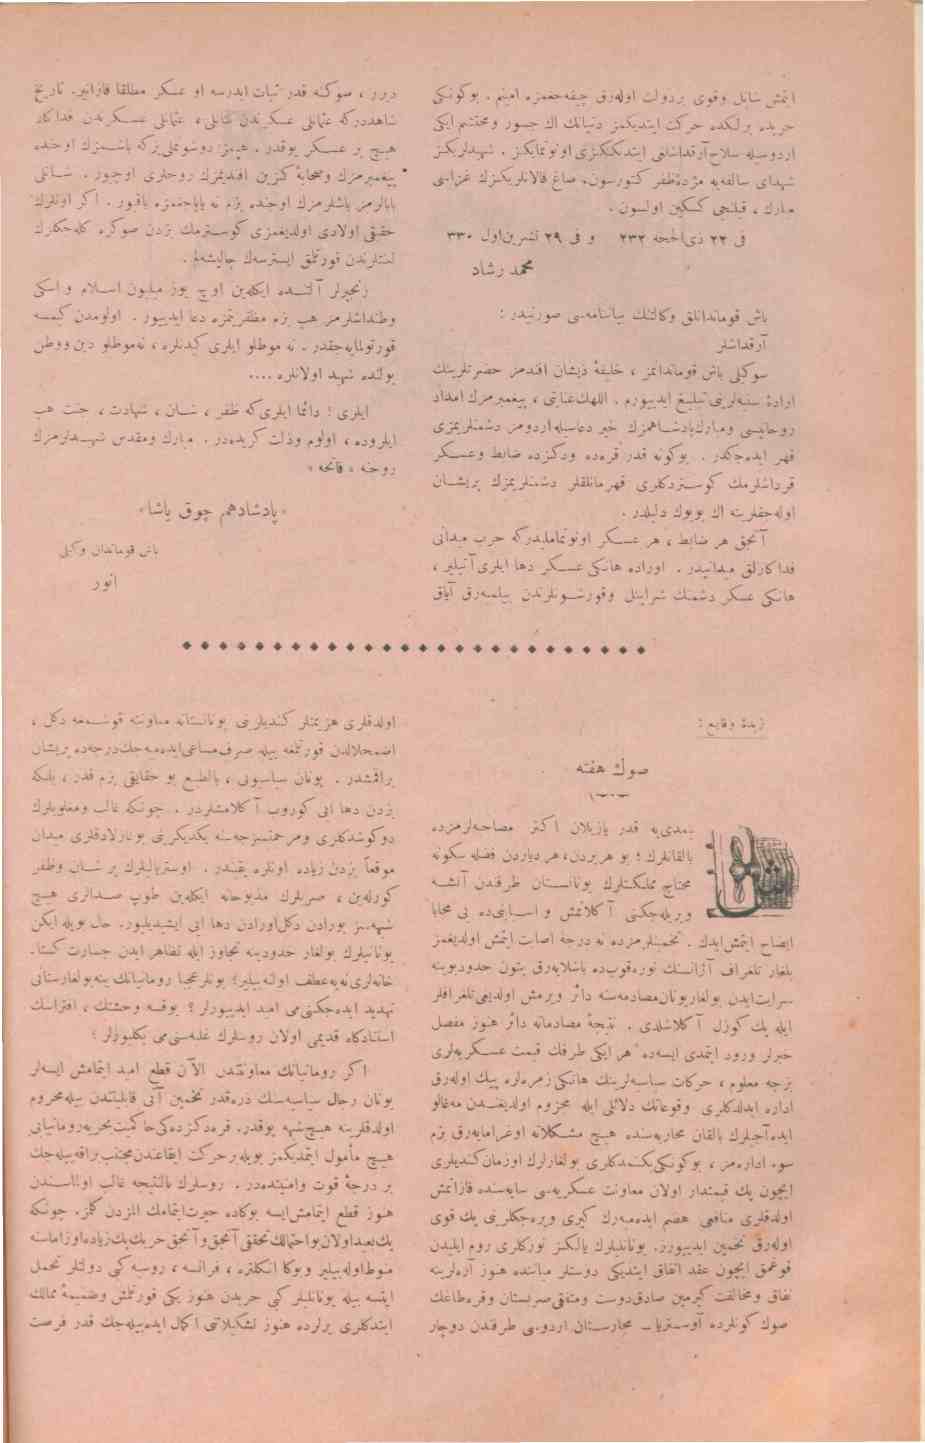 ایتمش شانلی وقوی بر دولت اوله‌رق چیقه‌جغمزه امینم . بوکونکی
حربده برلکده حرکت ایتدیکمز دنیانك اك جسور ومحتشم ایکی
اردوسیله سلاح آرقداشلغی ایتدیککزی اونوتمایکز . شهیدلریکز
شهدای سالفه‌یه مژدهٔ ظفر کتورسون، صاغ قالانلریکزك غزاسی
مبارك ، قیلنجی کسکین اولسون .
فی ۲۲ ذی‌الحجه ۳۳۲ و فی ۲۹ تشرین‌اول ۳۳۰
محمد رشاد
باش قوماندانلق وکالتنك بیاننامه‌سی صورتیدر :
آرقداشلر
سوکیلی باش قوماندانمز ، خلیفهٔ ذیشان افندمز حضرتلرینك
ارادهٔ سنیه‌لرینی تبلیغ ایدییورم . اللهك عنایتی ، پیغمبرمزك امداد
روحانیسی ومبارك پادشاهمزك خیر دعاسیله اردومز دشمنلریمزی
قهر ایده‌جکدر . بوکونه قدر قره‌ده ودکزده ضابط وعسکر
قرداشلرمك کوستردکلری قهرمانلقلر دشمنلریمزك پریشان
اوله‌جقلرینه اك بویوك دلیلدر .
آنجق هر ضابط ، هر عسکر اونوتماملیدرکه حرب میدانی
فداکارلق میدانیدر . اوراده هانکی عسکر دها ایلری آتیلیر ،
هانکی عسکر دشمنك شراپنل وقورشونلرندن ییلمیه‌رق آیاق
دیرر ، صوکنه قدر ثبات ایدرسه او عسکر مطلقا قازانیر. تاریخ
شاهددرکه عثمانلی عسکرندن شانلی ، عثمانلی عسکرندن فداکار
هیچ بر عسکر یوقدر . هپمز دوشونملی‌یزکه باشمزك اوجنده
پیغمبرمزك وصحابهٔ کزین افندیمزك روحلری اوچیور . شانلی
بابالرمز باشلرمزك اوجنده بزم نه یاپاجغمزه باقیور . اکر اونلرك
حقیقی اولادی اولدیغمزی کوسترمك بزدن صوکره کله‌جکلرك
لعنتلرندن قورتلمق ایسترسه‌ك چالیشه‌لم .
زنجیرلر آلتنده ایکله‌ین اوچ یوز میلیون اسلام و اسکی
وطنداشلرمز هپ بزم مظفریتمزه دعا ایدییور . اولومدن کیمسه
قورتولمایه‌جقدر . نه موطلو ایلری کیدنلره ، نه موطلو دین ووطن
یولنده شهید اولانلره ....
ایلری ! دائما ایلری که ظفر ، شان ، شهادت ، جنت هپ
ایلروده ، اولوم وذلت کریده‌در . مبارك ومقدس شهیدلرمزك
روحنه « فاتحه »
« پادشاهم چوق یاشا»
باش قوماندان وکیلی
انور
زبدهٔ وقایع :
صوك هفته
شمدی‌یه قدر یازیلان اکثر مصاحبه‌لرمزده
بالقانلرك ؛ بو هربردن، هر دیاردن فضله سکونه
محتاج مملکتلرك یونانستان طرفندن آتشه
ویریله‌جکنی آکلاتمش و اسبابنی‌ده بی محابا
ایضاح ایتمش‌ایدك . تخمینلرمزده نه درجه اصابت ایتمش اولدیغمز
بلغار تلغراف آژانسنك توره‌قوپ‌ده باشلایه‌رق بتون حدود بوینه
سرایت‌ایدن بولغار یونان مصادمه‌سنه دائر ویرمش اولدیغی تلغرافلر
ایله پك کوزل آکلاشلدی . نتیجهٔ مصادمه دائر هنوز مفصل
خبرلر ورود ایتمدی ایسه‌ده هر ایکی طرفك قیمت عسکریه‌لری
بزجه معلوم ، حرکات سیاسیه‌لرینك هانکی زمره‌لره پیك اوله‌رق
اداره ایدلدکلری وقوعاتك دلائلی ایله مجزوم اولدیغندن مغلوب
ایده‌جکلرك بالقان محاربه‌سنده هیچ مشکلاته اوغرامایه‌رق بزم
سوء اداره‌مز ، بوکونکی بکنمدکلری بولغارلرك اوزمان کندیلری
ایچون پك قیمتدار اولان معاونت عسکریه‌سی سایه‌سنده قازانمش
اولدقلری منافعی هضم ایده‌میه‌رك کیری ویره‌جکلرینی پك قوی
اوله‌رق تخمین ایدییورز. یونانلیلرك یالکز تورکلری روم ایلیدن
قوغمق ایچون عقد اتفاق ایتدیکی دوستلر میاننده هنوز آره‌لرینه
نفاق ومخالفت کیرمین صادق دوست ومتفقی صربستان وقره‌طاغك
صوك کونلرده آوستریا - مجارستان اردوسی طرفندن دوچار
اولدقلری هزیمتلر کندیلرینی یونانستانه معاونته قوشمه دکل ،
اضمحلالدن قورتلمغه بیله صرف مساعی ایده‌میه‌جك درجه‌ده پریشان
براقمشدر . یونان سیاسیونی ، بالطبع بو حقایقی بزم قدر ، بلکه
بزدن دها ائی کوروب آکلامشلردر . چونکه غالب ومغلوبلرك
دوکوشدکلری ومرحمتسزجه‌سنه یکدیکرینی بوغازلادقلری میدان
موقعاً بزدن زیاده اونلره یقیندر . اوستریالیلرك پر شان وظفر
کورله‌ین ، صربلرك مذبوحانه ایکله‌ین طوپ صدالری هیچ
شبهه‌سز بورادن دکل اورادن دها ائی ایشیدیلیور. حال بویله ایکن
یونانیلرك بولغار حدودینه تجاوز ایله تظاهر ایدن جسارت کستا‌ـ
خانه‌لری نه‌یه عطف اولنه‌بیلیر؟ بونلر عجبا رومانیانك ینه بولغارستانی
تهدید ایده‌جکنی‌می امید ایدییورلر ؟ یوقسه وحشتك ، افتراسك
استنادکاه قدیمی اولان روسلرك غلبه‌سنی‌می بکلیورلر ؟
اکر رومانیانك معاونتندن الآن قطع امید ایتمامش ایسه‌لر
یونان رجال سیاسیه‌سنك ذره‌قدر تخمین آتی قابلیتندن بیله محروم
اولدقلرینه هیچ شبهه یوقدر. قره‌دکزده‌کی حاکمیت بحریه رومانیایی
هیچ مأمول ایتمدیکمز بویله بر حرکت ایقاعندن مجتنب براقه‌بیله‌جك
بر درجهٔ قوت وامنیتده‌در . روسلرك بالنتیجه غالب اولماسندن
هنوز قطع ایتمامش ایسه بوکاده حیرت ایتمامك الزدن کلمز. چونکه
پك بعید اولان بو احتمالك تحققی آنجق و آنجق حربك پك زیاده اوزاماسنه
منوط اوله‌بیلیر وبوکا انکلتره ، فرانسه ، روسیه کبی دولتلر تحمل
ایتسه بیله یونانلیلر کبی حربدن هنوز یکی قورتلمش وضمیمهٔ ممالك
ایتدکلری یرلرده هنوز تشکیلاتنی اکمال ایده‌بیله‌جك قدر فرصت